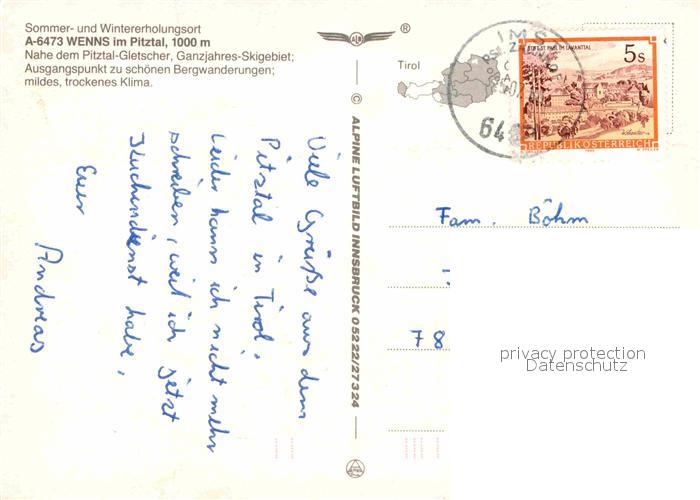 Sommer- und Wintererholungsort
A-6473 WENNS im Pitztal, 1000 m
Nahe dem Pitztal-Gletscher, Ganzjahres-Skigebiet;
Ausgangspunkt zu schönen Bergwanderungen;
mildes, trockenes Klima.
Viele Grüße aus dem
Pitztal in Tirol.
Leider kann ich nicht mehr
schreiben, weil ich jetzt
Küchendienst habe.
Euer
Andreas
© ALPINE LUFTBILD INNSBRUCK 0 52 22/27 3 24
®
Tirol
IMS
5 S
REPUBLIK ÖSTERREICH
Fam. Böhm
78
privacy protection
Datenschutz